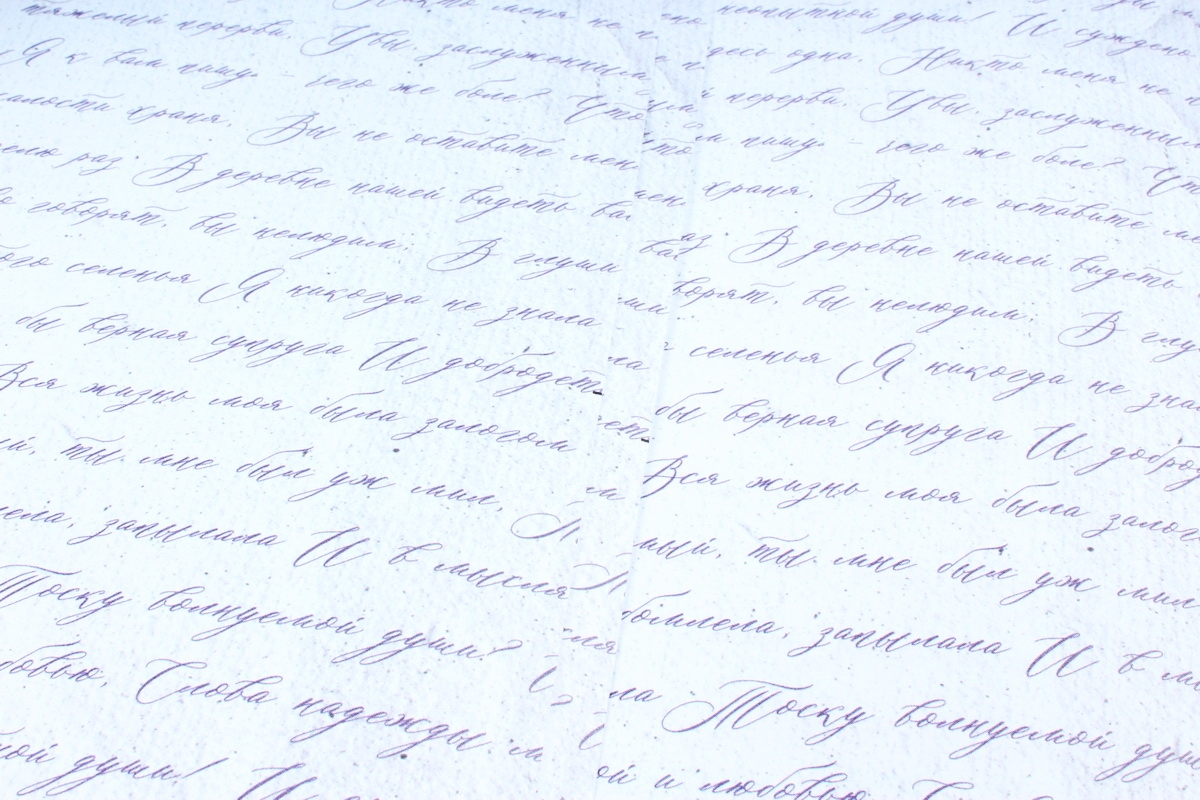 тяжелей перерви. Увы, заслуженным
Я к вам пишу – чего же боле? Что
жалости храня, Вы не оставите мен
делю раз В деревне нашей видеть ва
о говорят, вы нелюдим; В глуши
ого селенья Я никогда не знала
бы верная супруга И добродет
Вся жизнь моя была залогом
ый, ты мне был уж мил,
мела, запылала И в мысля
Тоску волнуемой души?
бовью, Слова надежды м
ной души! И
но неопытной души! И суждено
десь одна, Никто меня не п
перерви. Увы, заслуженным
м пишу – чего же боле? Что
храня, Вы не оставите ме
аз В деревне нашей видеть
ворят, вы нелюдим; В глу
селенья Я никогда не зна
бы верная супруга И добро
Вся жизнь моя была залог
мый, ты мне был уж мил
бомлела, запылала И в м
ла Тоску волнуемой душ
ой и любовью,